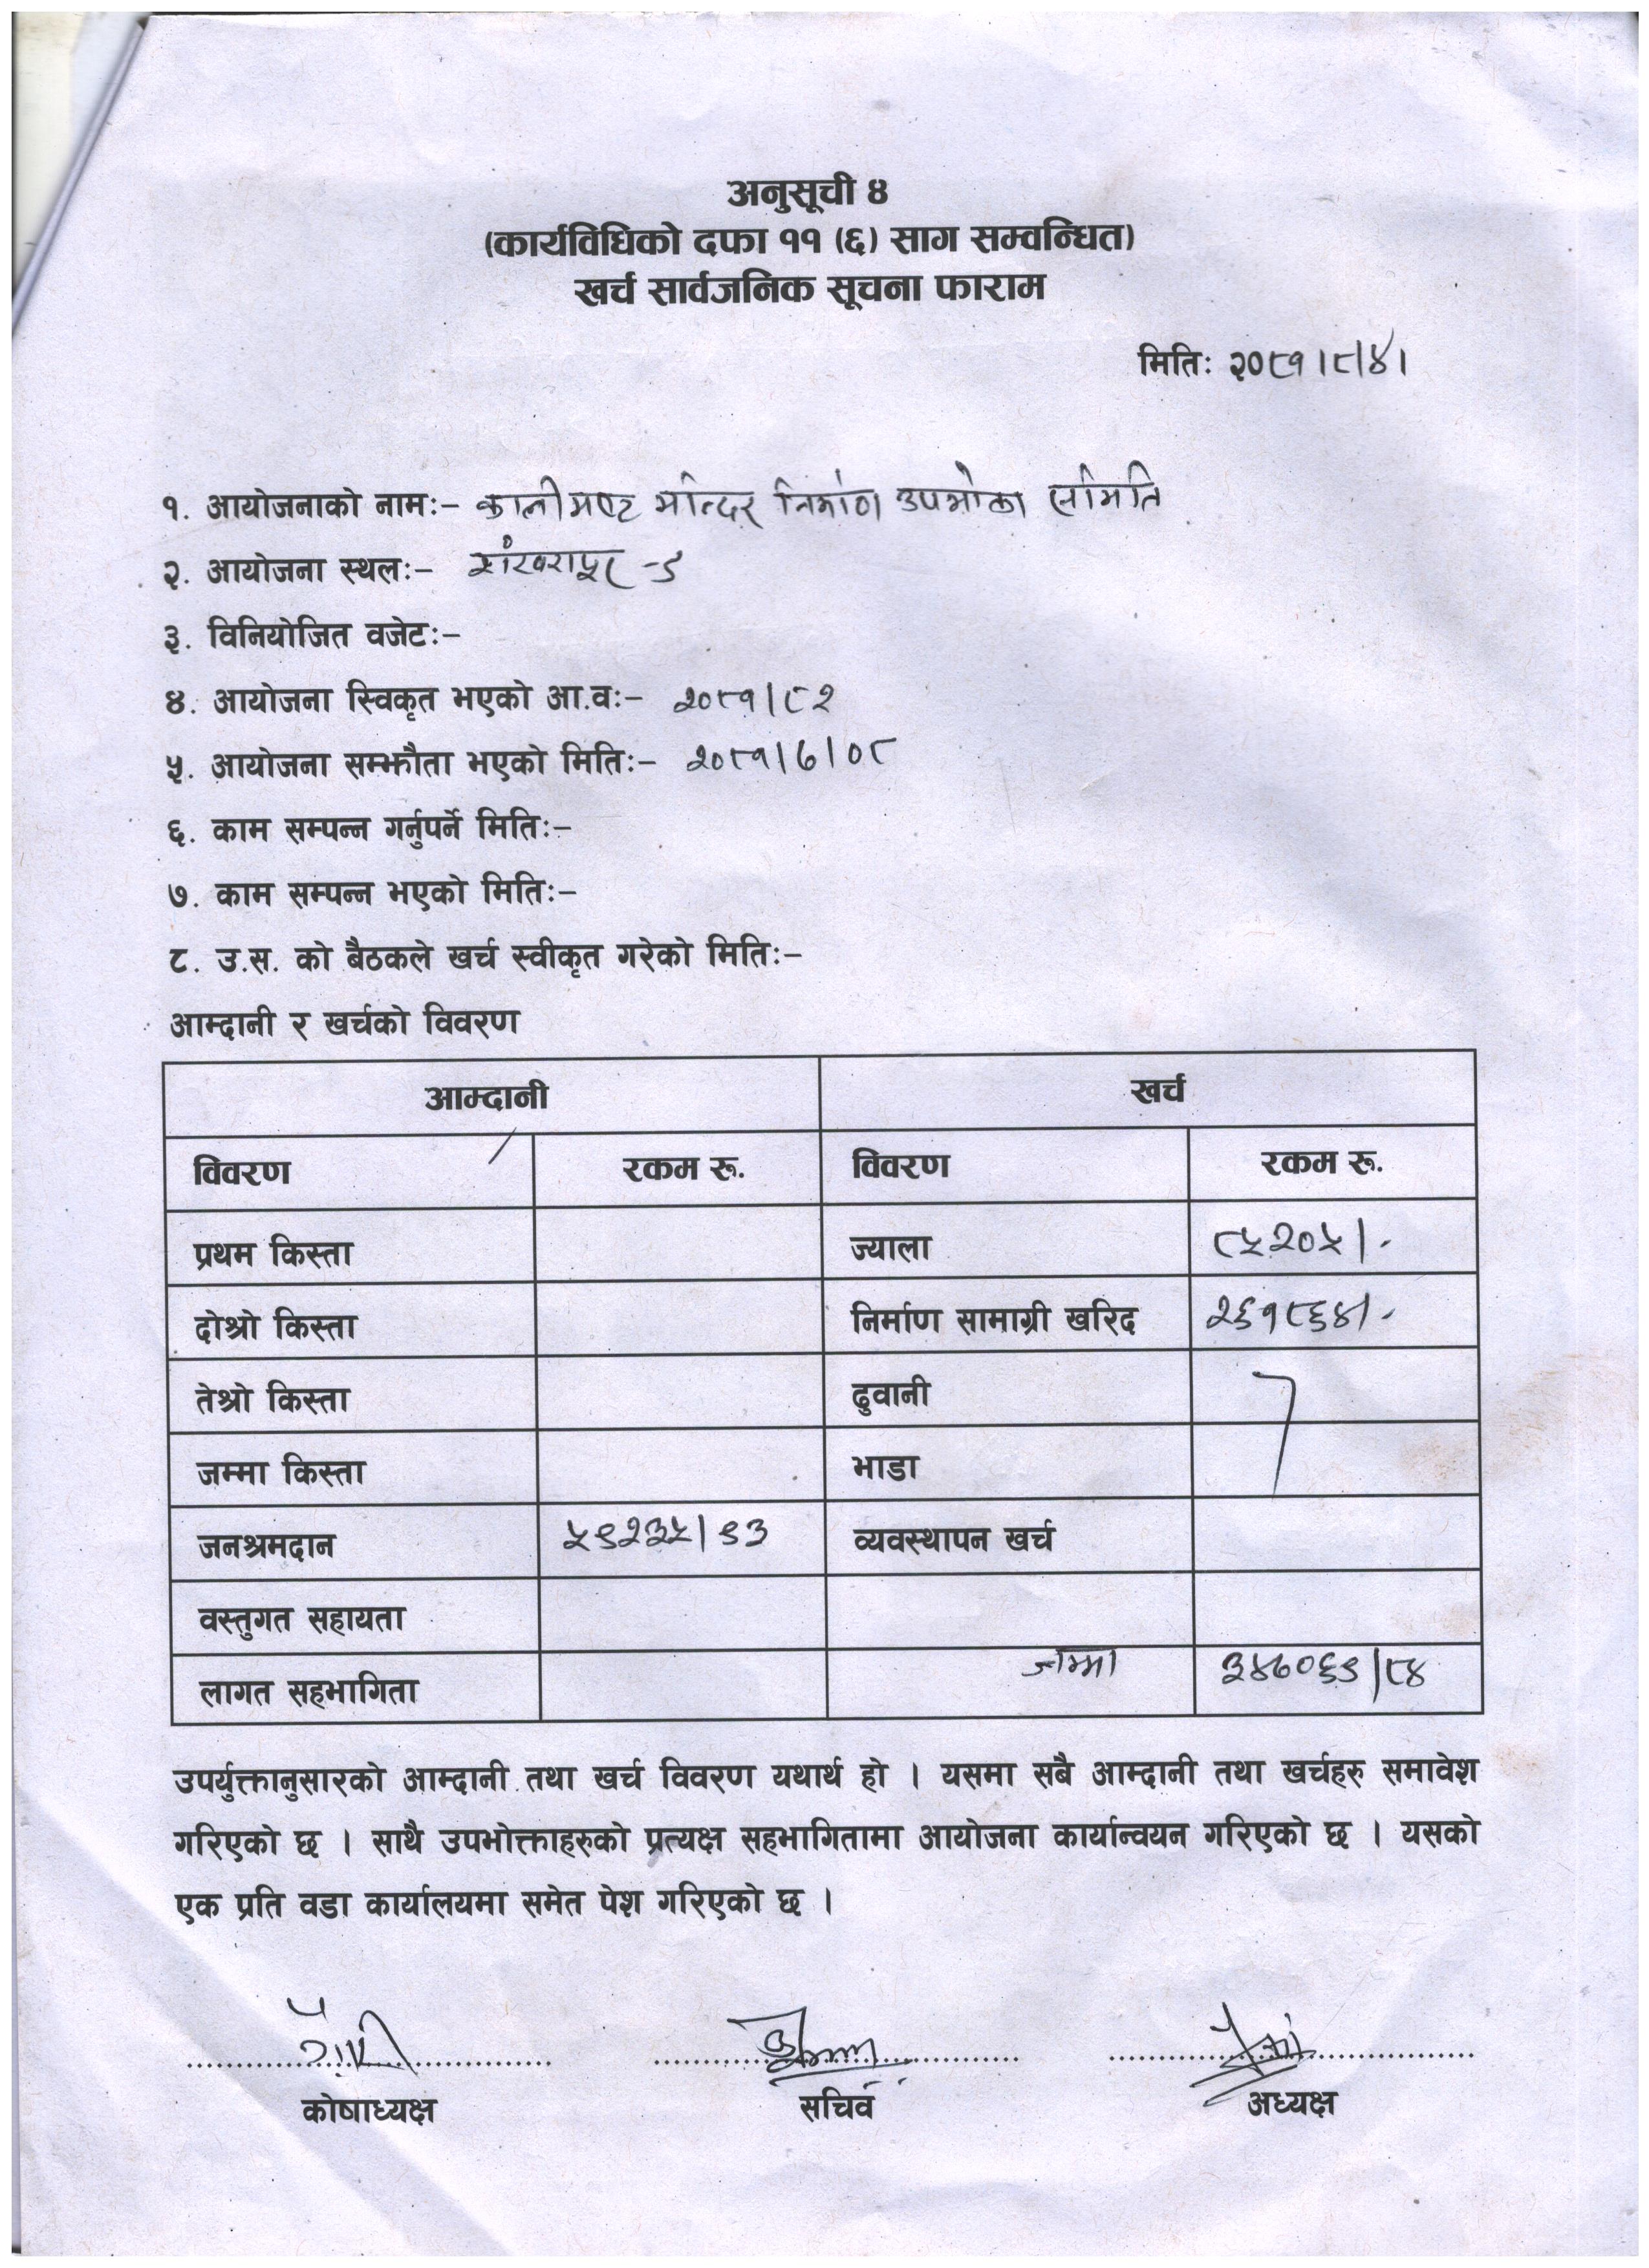 अनुसूची ४
(कार्यविधिको दफा ११ (६) साग सम्वन्धित)
खर्च सार्वजनिक सूचना फाराम
मितिः २०८१।८।४।
१. आयोजनाको नामः– कालीमण्ट मन्दिर निर्माण उपभोक्ता समिति
२. आयोजना स्थलः– शंखरापुर -९
३. विनियोजित वजेटः–
४. आयोजना स्विकृत भएको आ.वः– २०८१।८२
५. आयोजना सम्झौता भएको मितिः– २०८१।७।०८
६. काम सम्पन्न गर्नुपर्ने मितिः–
७. काम सम्पन्न भएको मितिः–
८. उ.स. को बैठकले खर्च स्वीकृत गरेको मितिः–
आम्दानी र खर्चको विवरण
आम्दानी खर्च
विवरण रकम रू. विवरण रकम रू.
प्रथम किस्ता ज्याला ८५२०५।-
दोश्रो किस्ता निर्माण सामाग्री खरिद २६१८६४।-
तेश्रो किस्ता ढुवानी
जम्मा किस्ता भाडा
जनश्रमदान ५९२३५।९३ व्यवस्थापन खर्च
वस्तुगत सहायता
लागत सहभागिता जम्मा ३४७०६९।८४
उपर्युक्तानुसारको आम्दानी तथा खर्च विवरण यथार्थ हो । यसमा सबै आम्दानी तथा खर्चहरु समावेश
गरिएको छ । साथै उपभोक्ताहरुको प्रत्यक्ष सहभागितामा आयोजना कार्यान्वयन गरिएको छ । यसको
एक प्रति वडा कार्यालयमा समेत पेश गरिएको छ ।
कोषाध्यक्ष सचिव अध्यक्ष